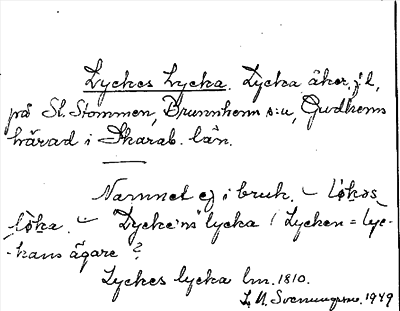 Lyckes Lycka. Lycka åker, f.l,
på St. Stommen, Brunnhems s:n, Gudhems
härad i Skarab. län.
Namnet ej i bruk. – løkəs
løka. – "Lycke'ns" lycka! Lycken = lyc-
-kans ägare?
Lyckes lycka lm. 1810.
L. M. Svenungsson. 1949